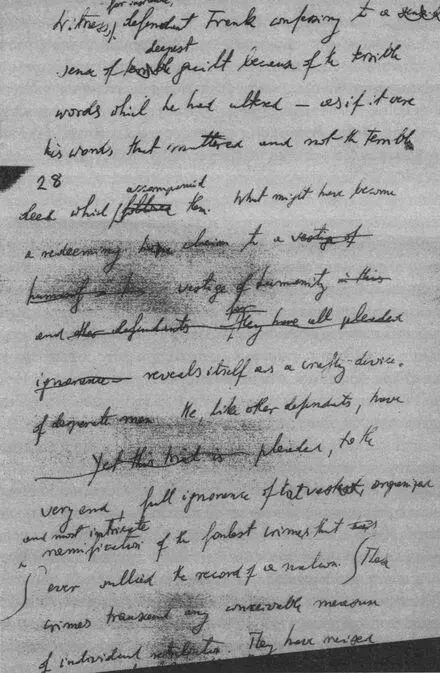 for instance,
Witness, defendant Frank confessing to a
deepest
sense of terrible guilt because of the terrible
words which he had uttered – as if it were
his words that mattered and not the terrible
28
accompanied
deed which followed them. What might have become
a redeeming hope claim to a vestige of
humanity in this vestige of humanity in this
and other defendants They have all pleaded
ignorance reveals itself as a crafty device
of desperate men. He, like other defendants, have
Yet this trial is pleaded, to the
very end, full ignorance of that vastest, organized
and most intricate
ramification of the foulest crimes that was
ever sullied the record of a nation. These
crimes transcend any conceivable measure
of individual retribution. They have